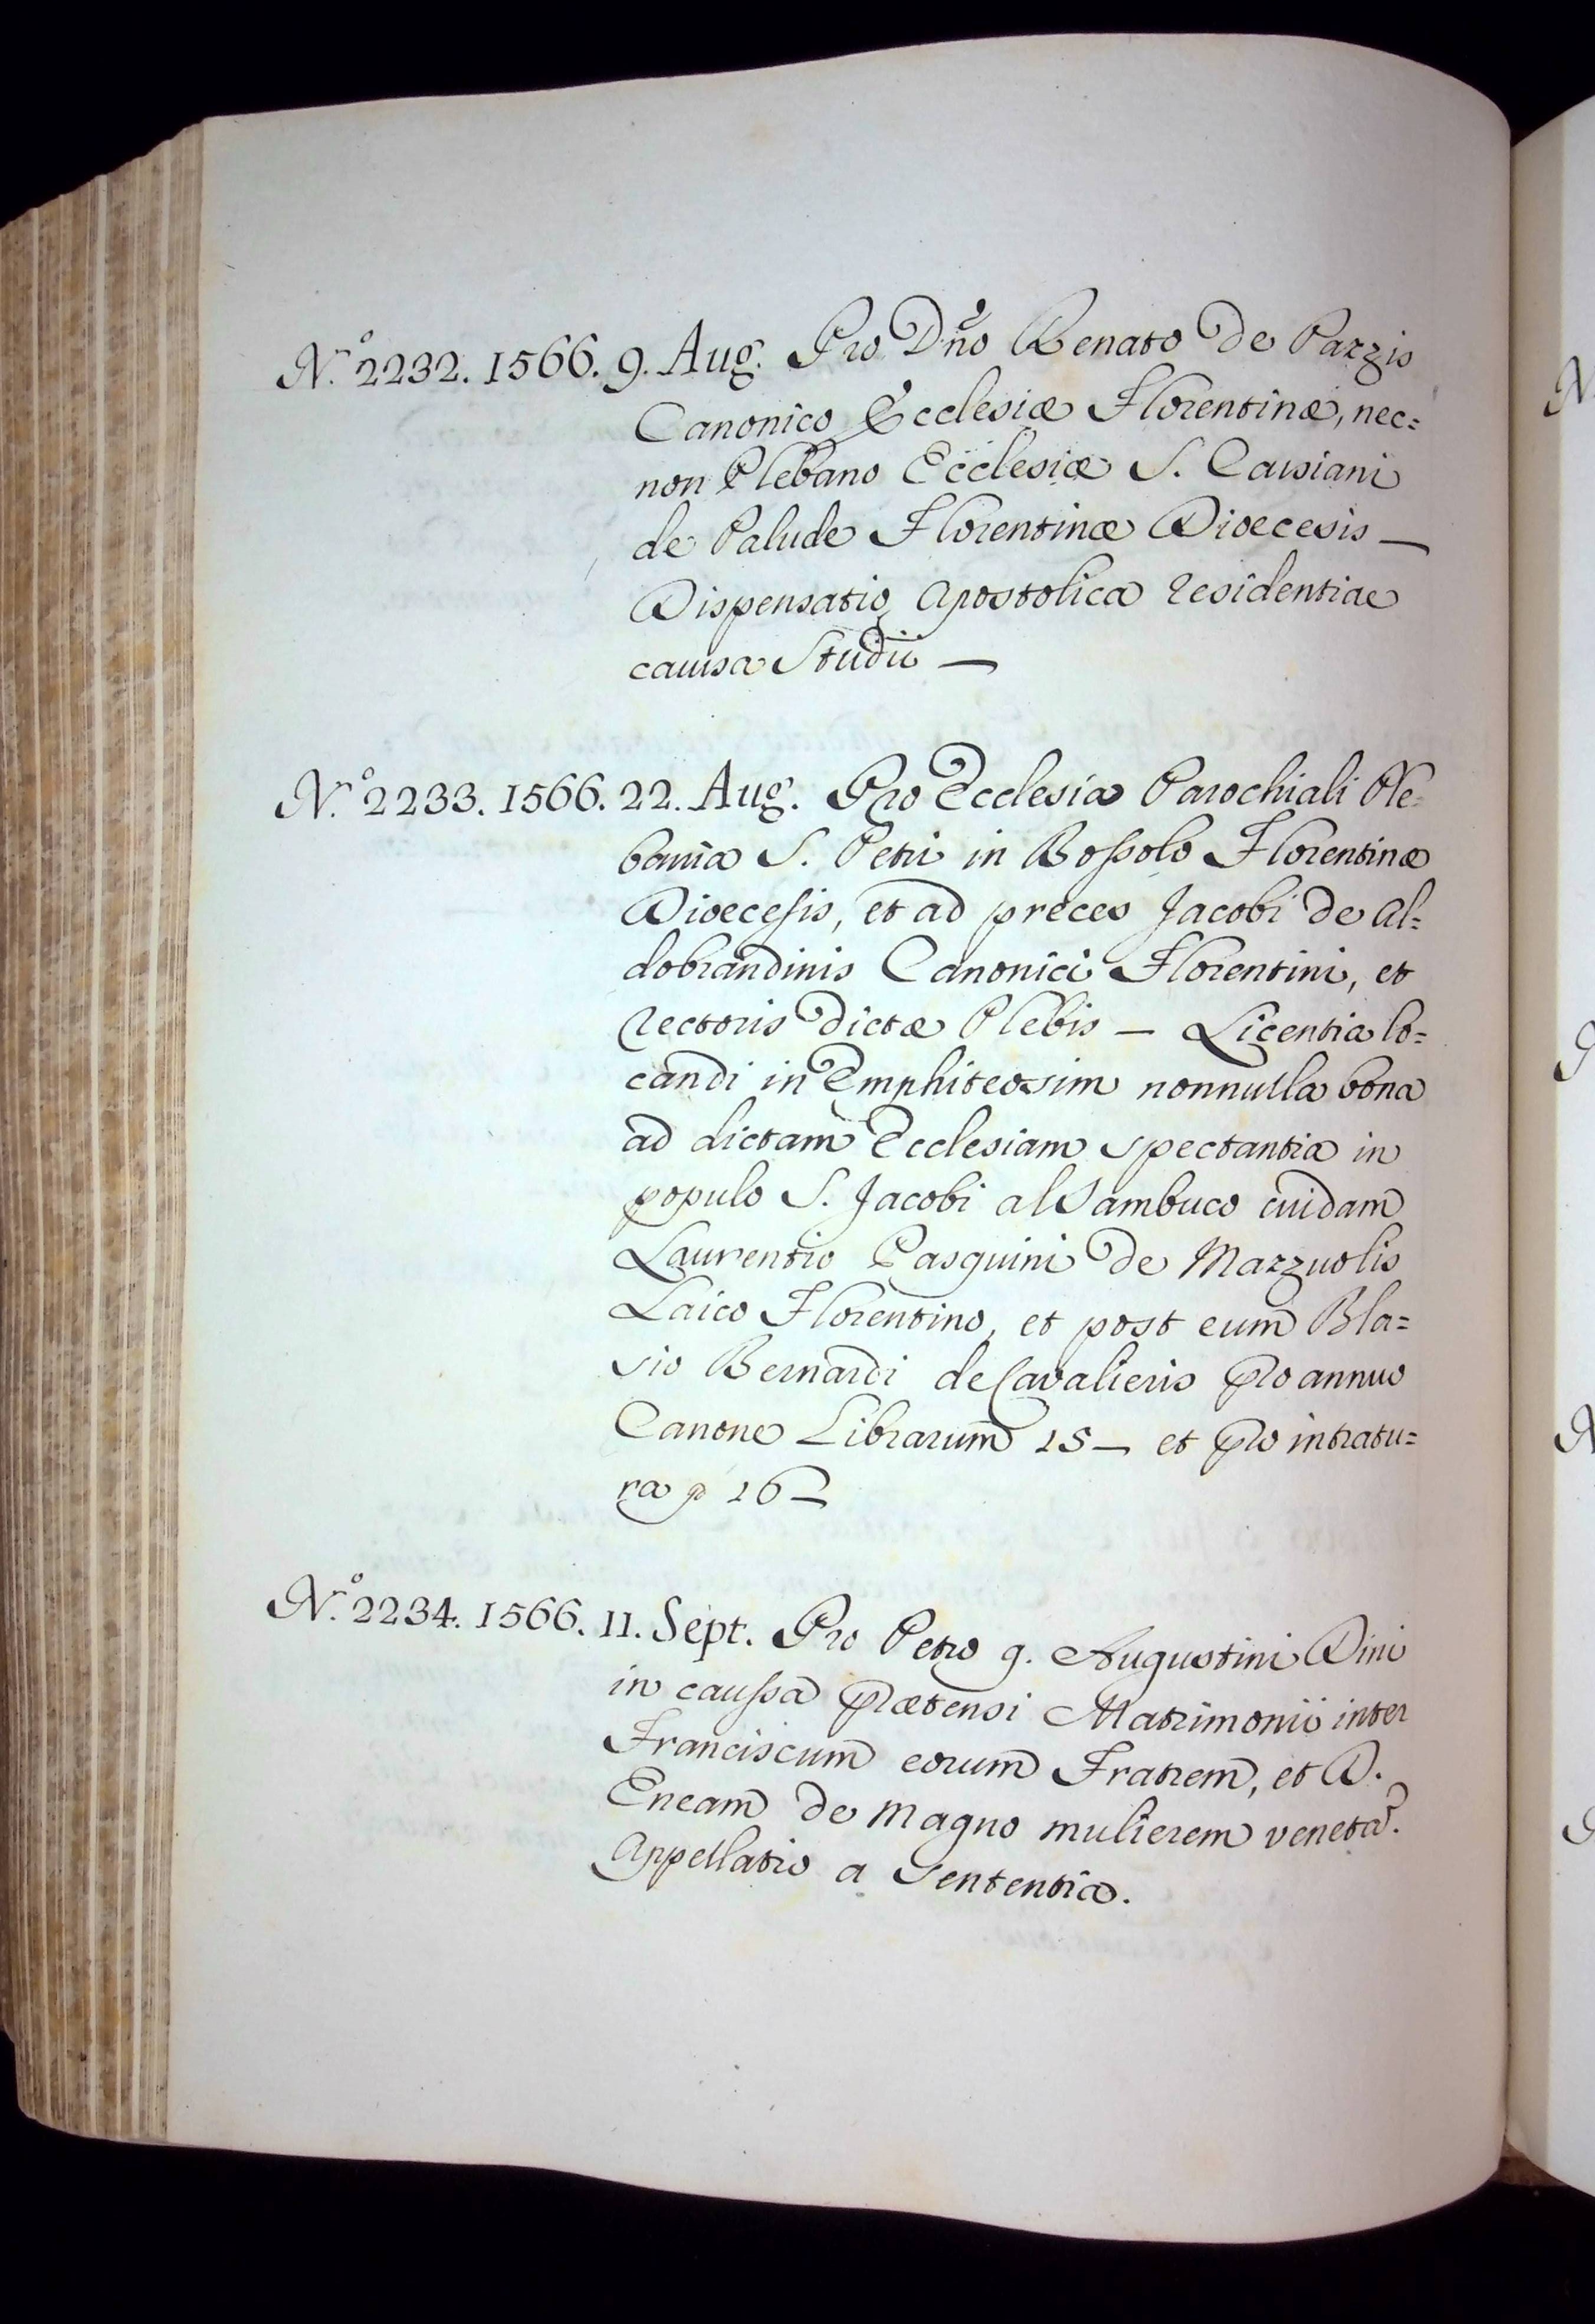 N.º 2232. 1566. 9. Aug. Pro Dño Renato de Pazzis
Canonico Ecclesiæ Florentinæ, nec=
non Plebano Ecclesiæ S. Cassiani
de Palude Florentinæ Dioecesis —
Dispensatio Apostolica residentiae
causa Studii —
N.º 2233. 1566. 22. Aug. Pro Ecclesia Parochiali Ple=
bania S. Petri in Bossolo Florentinæ
Dioecesis, et ad preces Jacobi de Al=
dobrandinis Canonici Florentini, et
rectoris dictæ Plebis — Licentia lo=
candi in Emphiteosim nonnulla bona
ad dictam Ecclesiam spectantia in
populo S. Jacobi al Sambuco cuidam
Laurentio Pasquini de Mazzuolis
Laico Florentino, et post eum Bla=
sio Bernardi de Cavalieris pro annuo
Canone Librarum 15 — et pro intratu=
ra 16 —
N.º 2234. 1566. 11. Sept. Pro Petro q. Augustini Dini
in caussa prætensi Matrimonii inter
Franciscum eorum Fratrem, et D.
Eneam de Magno mulierem venetã.
Appellatio a Sententia.